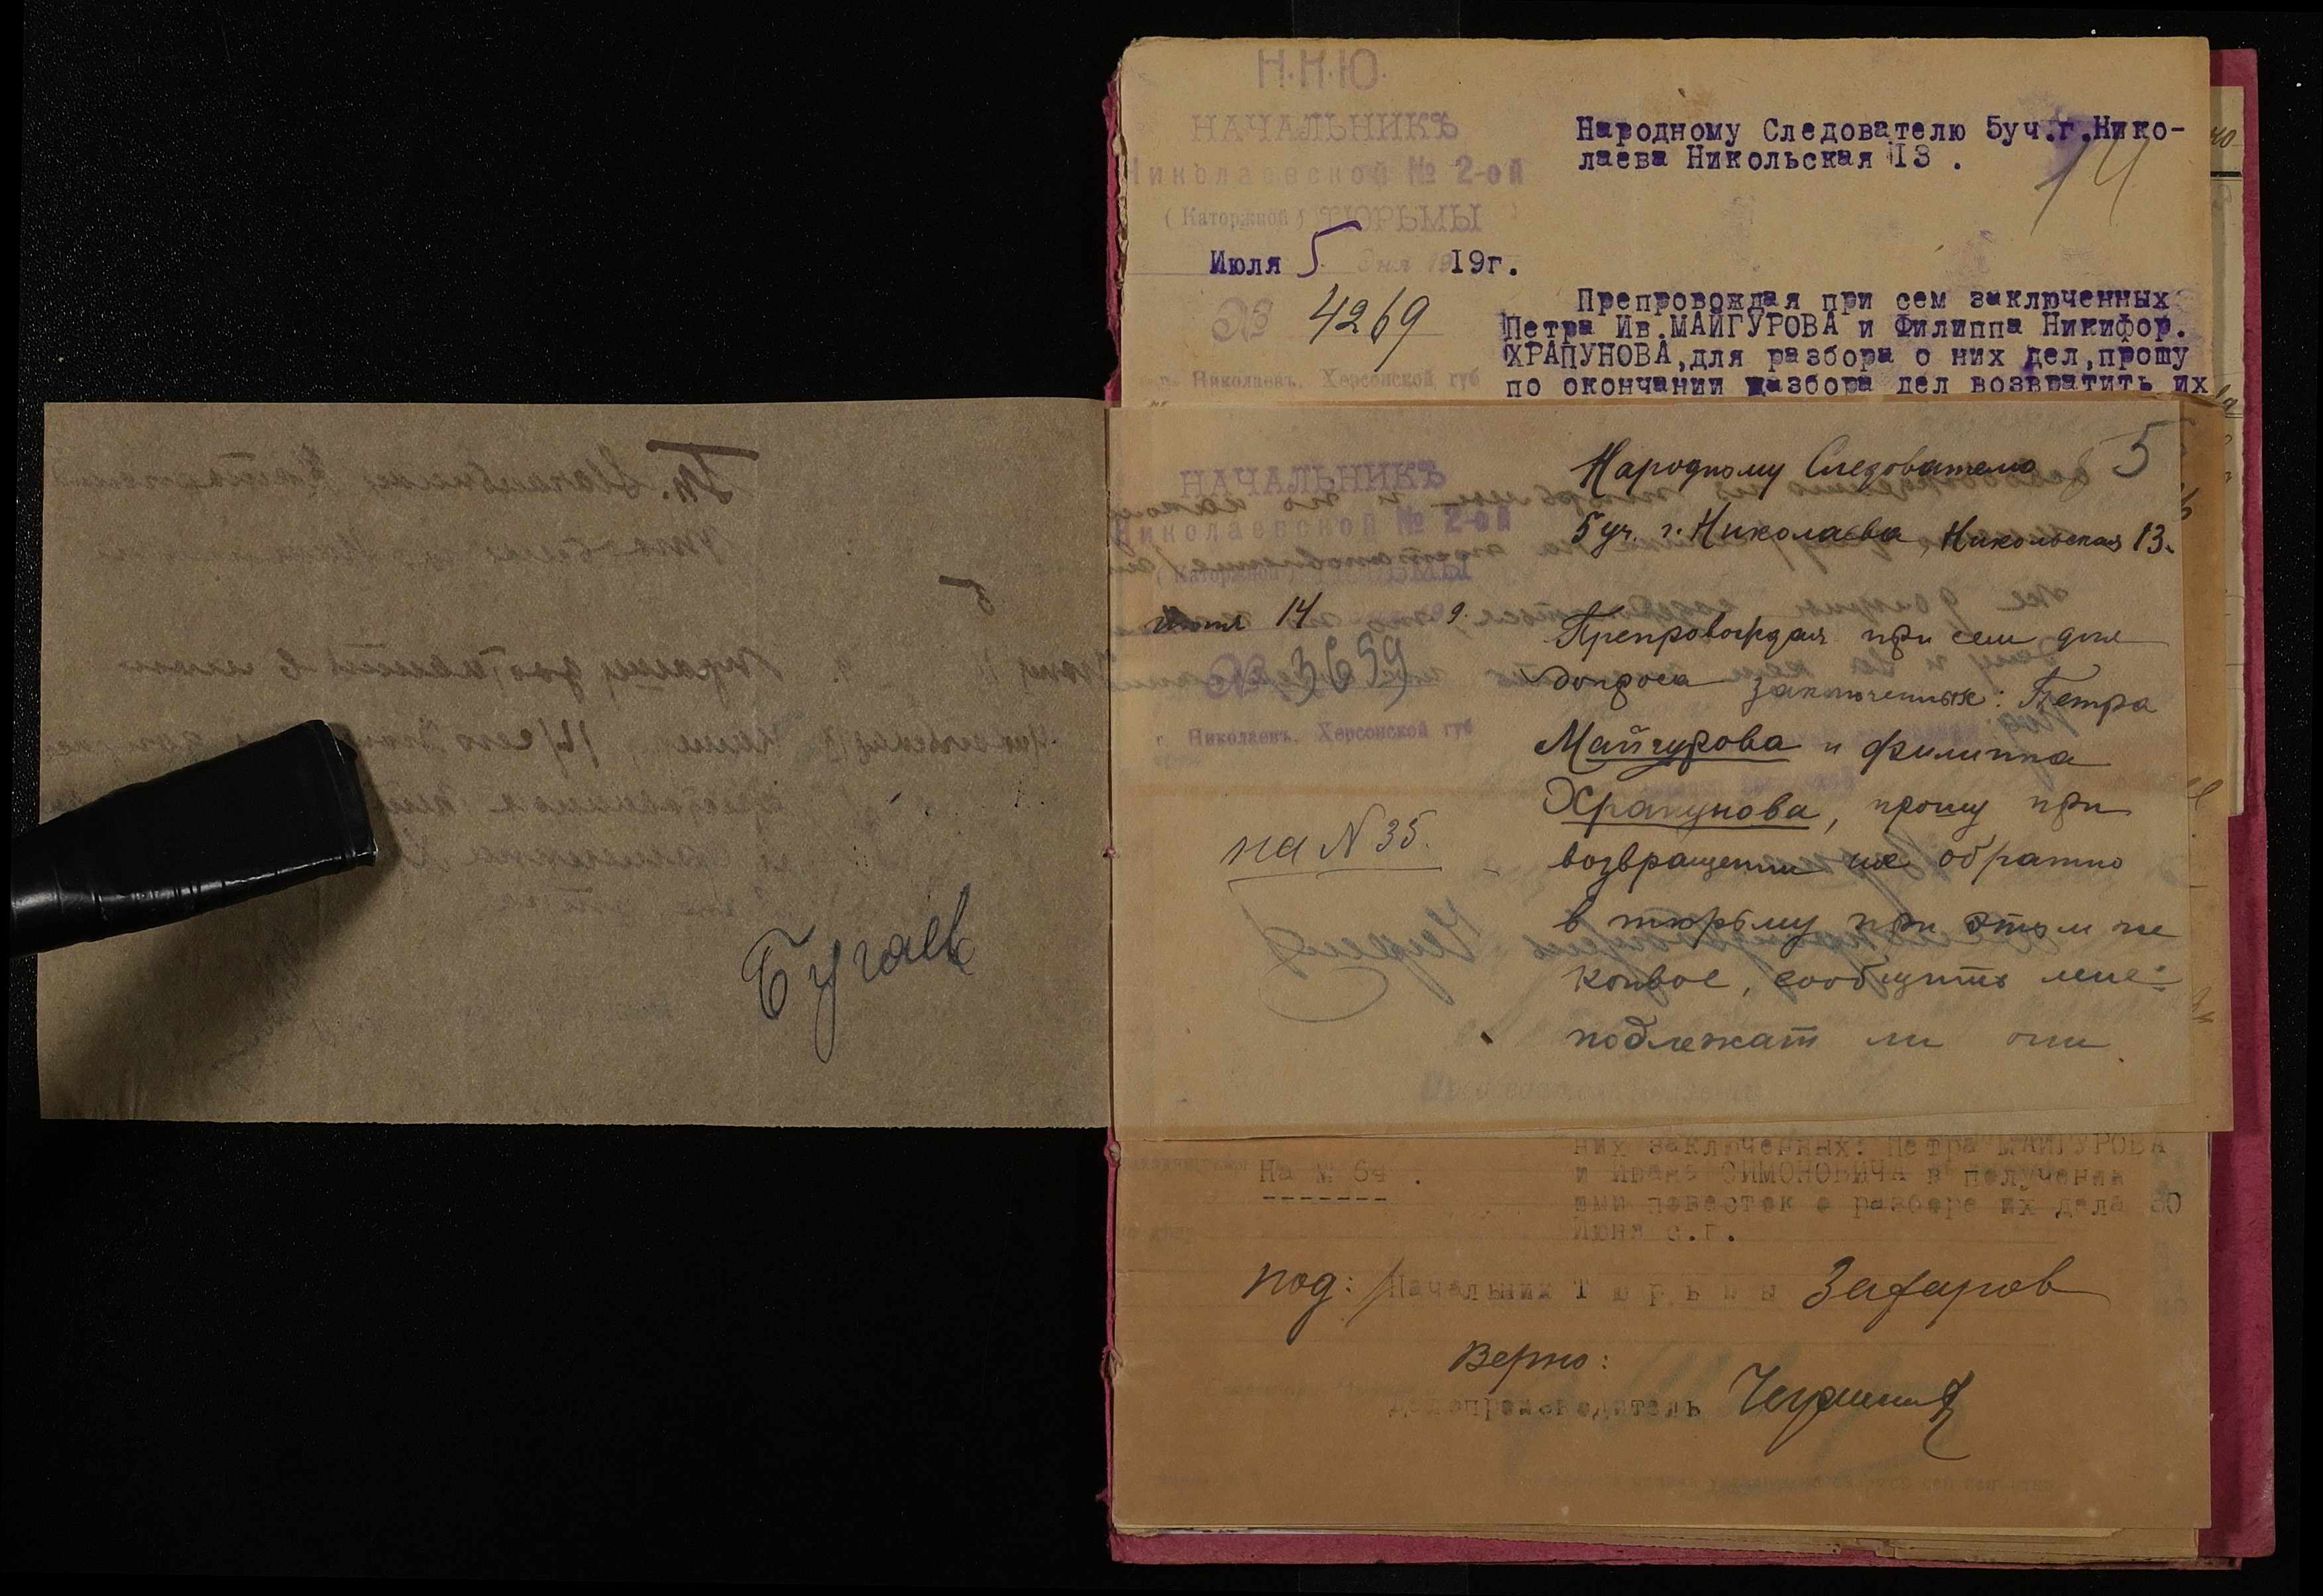 Бугаев
Н.К.Ю.
НАЧАЛЬНИКЪ
Николаевской № 2-ой
(Каторжной) ТЮРЬМЫ
Июля 5 дня 19г.
№ 4269
г. Николаевъ, Херсонской губ
Народному Следователю 5уч.г.Нико-
лаева Никольская 13 .
14
Препровождая при сем заключенных
Петра Ив.МАЙГУРОВА и Филиппа Никифор.
ХРАПУНОВА,для разбора о них дел,прошу
по окончании разбора дел возвратить их
НАЧАЛЬНИКЪ
Николаевской № 2-ой
(Каторжной)
14 9.
№ 3659
г. Николаевъ, Херсонской губ
на N 35.
Народному Следователю
5
5 уч. г. Николаева, Никольская 13.
Препровождая при сем для
допроса заключенных: Петра
Майгурова и Филиппа
Храпунова, прошу при
возвращении их обратно
в тюрьму при этом же
конвое, сообщить мне:
подлежат ли они
На № 64 .
них заключенных: Петра МАЙГУРОВА
и Ивана СИМОНОВИЧА в получении
ими повесток о разборе их дела 30
Июня с.г.
под: Начальник Тюрьмы Захаров
Верно:
Делопроизводитель